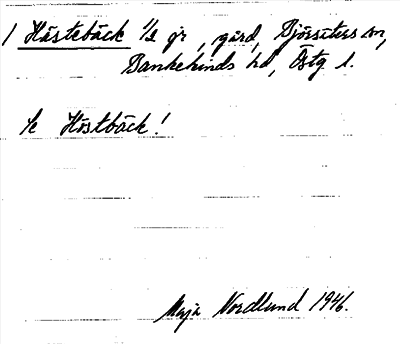 1 Hästebäck 1/2 gr, gård, Björsäters sn,
Bankekinds hd, Östg l.
Se Höstbäck!
Maja Nordlund 1946.